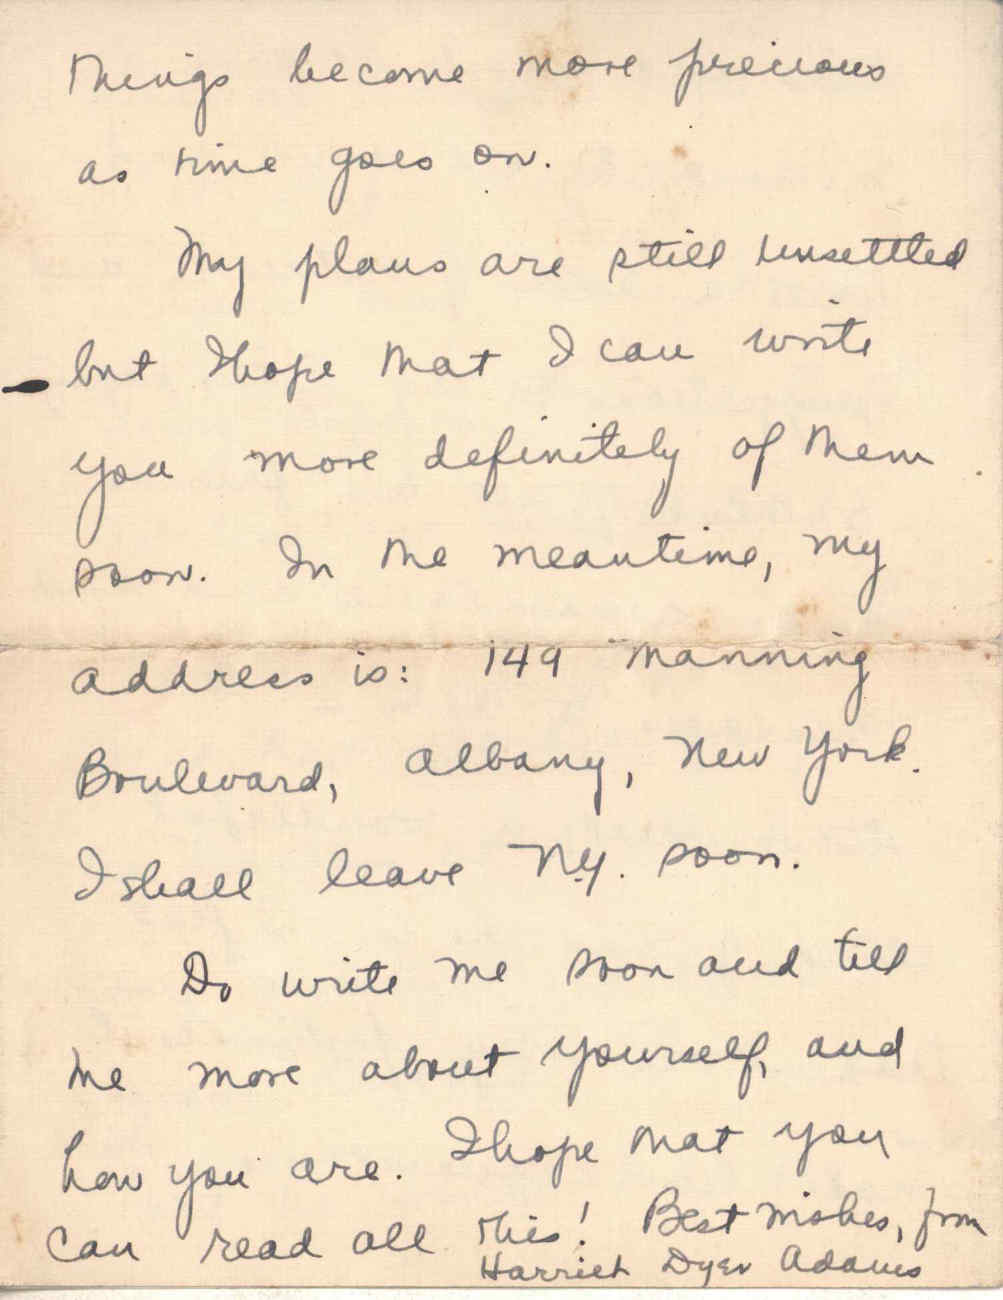 things become more precious
as time goes on.
My plans are still unsettled
but I hope that I can write
you more definitely of them
soon. In the meantime, my
address is: 149 Manning
Boulevard, Albany, New York.
I shall leave N.Y. soon.
Do write me soon and tell
me more about yourself, and
how you are. I hope that you
can read all this! Best wishes, from
Harriet Dyer Adams